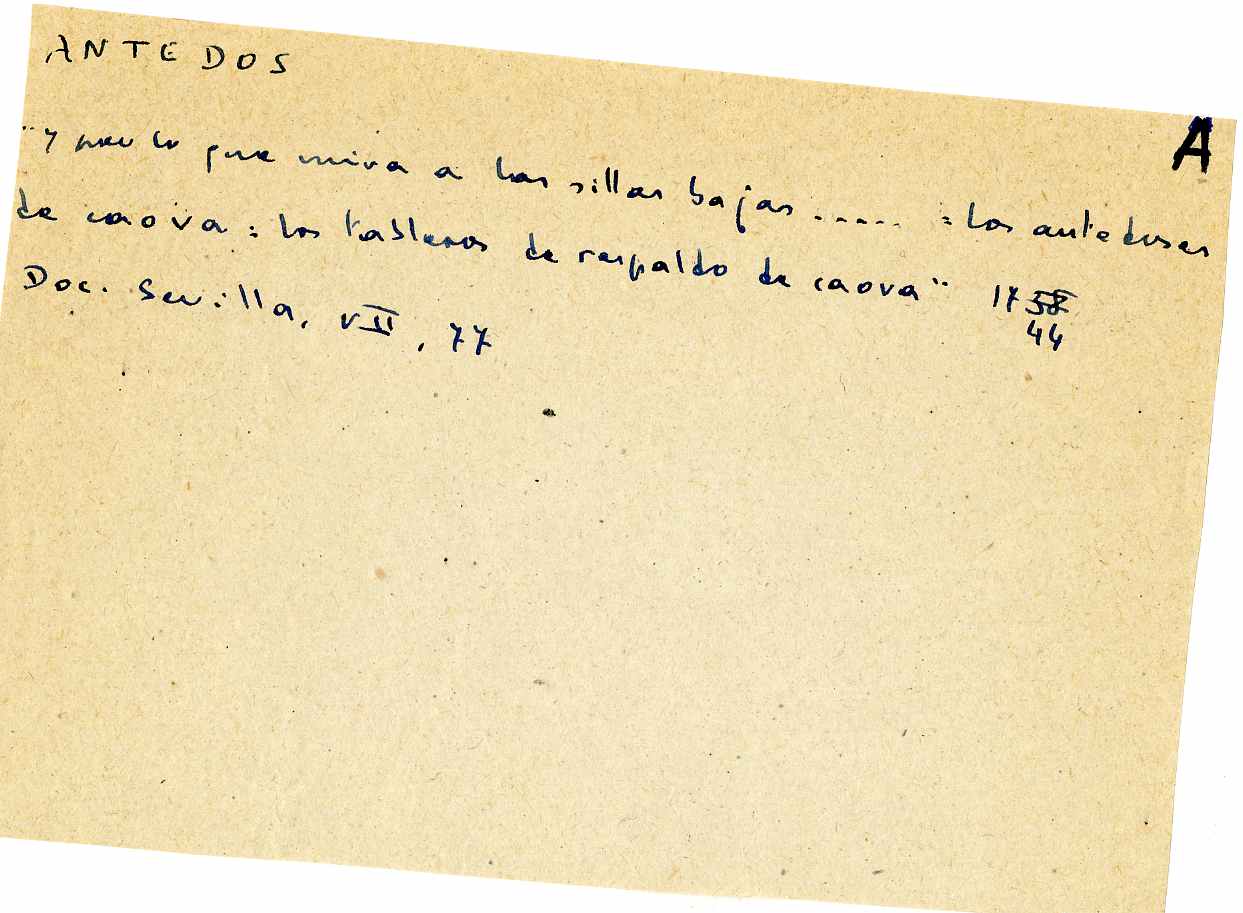 ANTEDOS
A
"y por lo que mira a las sillas bajas ..... = los antedoses
de caova = los tableros de respaldo de caova" 1758
44
Doc. Sevilla, VII, 77